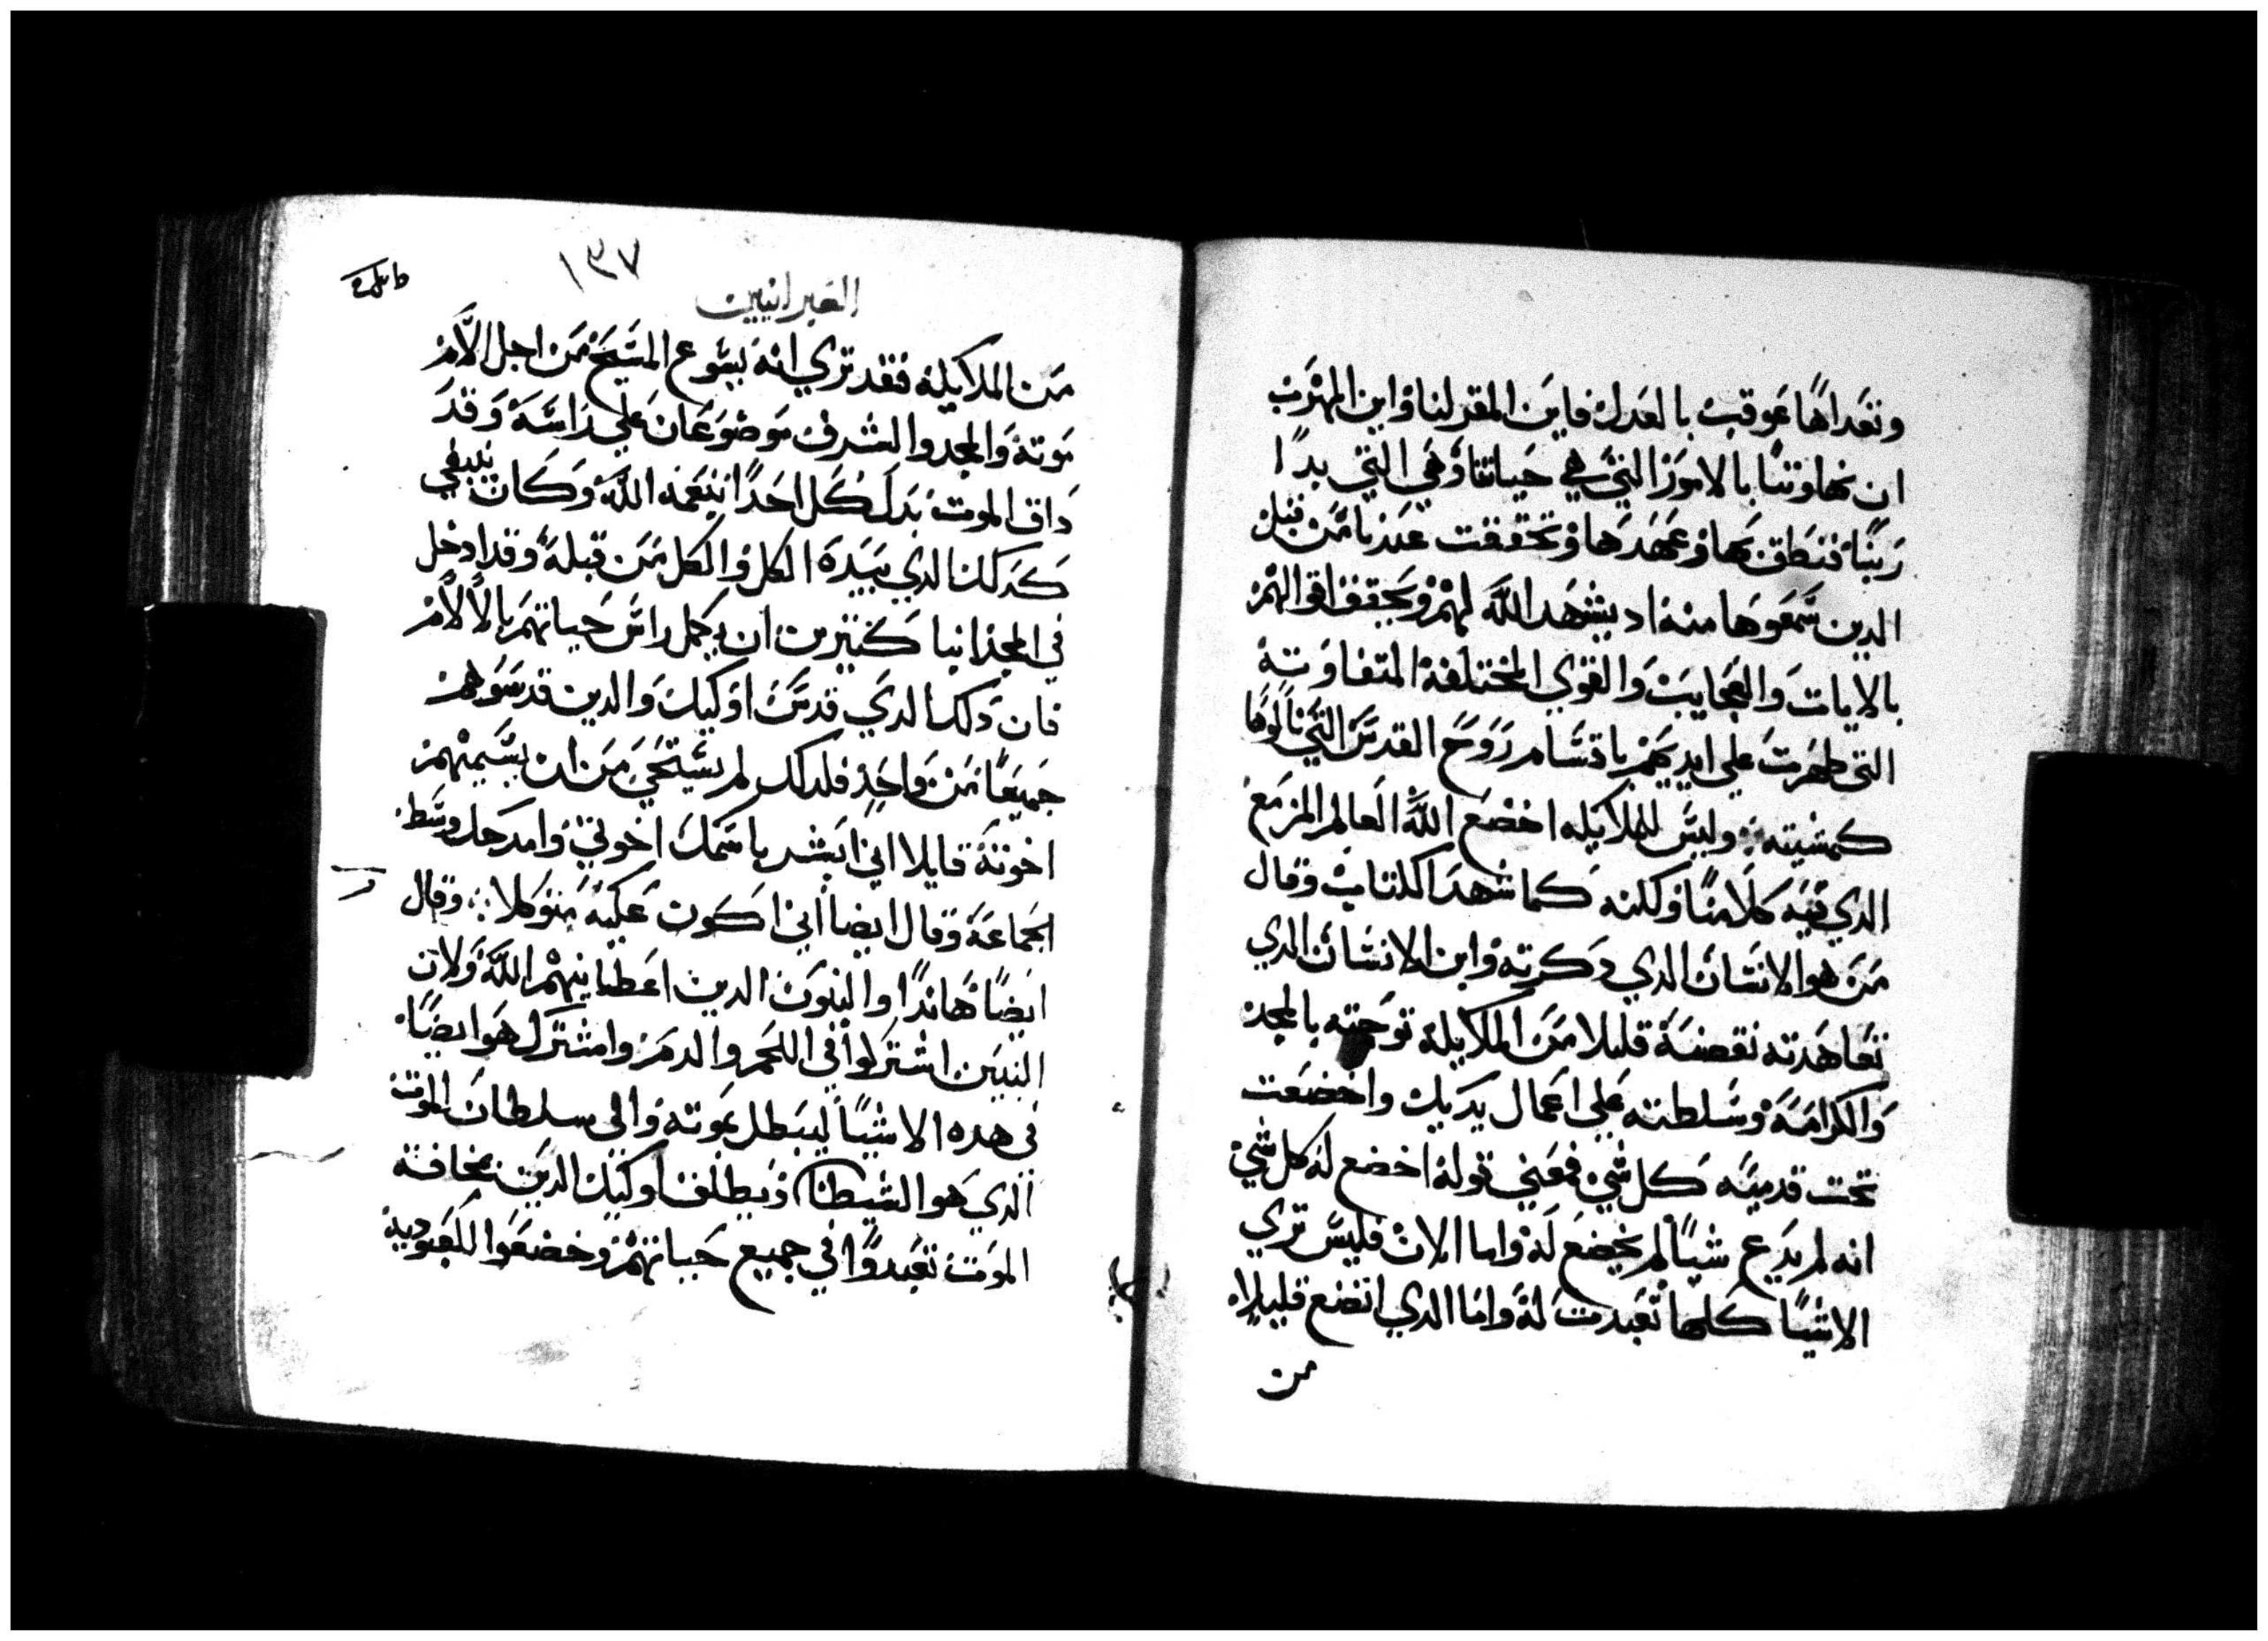 وتعداها عوقب بالعدل فاين المقر لنا واين المهرب
ان تهاونا بالامور التي هي حياتنا وهي التي بدا
ربنا فنطق بها وعهدها وتحققت عندنا من قبل
الدين سمعوها منه اد يشهد الله لهم ويحقق اقوالهم
بالايات والعجايب والقوي المختلفة المتفاوته
التي ظهرت علي ايديهم باقتسام روح القدس التي نالوها
كمشيته وليس للملايكه اخضع الله العالم المزمع
الدي فيه كلامنا ولكنه كما شهد الكتاب وقال
من هو الانسان الدي دكرته وابن الانسان الدي
تعاهدته نقصته قليلا من الملايكة توجته بالمجد
والكرامة وسلطته علي اعمال يديك واخضعت
تحت قدميه كل شي فمعني قوله اخضع له كل شي
انه لم يدع شيا لم يخضع له واما الان فليس نري
الاشيا كلها تعبدت له واما الدي اتضع قليلا
من
١٣٧
العبرانيين
من الملايكة فقد نري انه يسوع المسيح من اجل الام
موته والمجد والشرف موضوعان علي راسه وقد
داق الموت بدل كل احدا بنعمة الله وكان ينبغي
كدلك الدي بيده الكل والكل من قبله وقد ادخل
في المجد ابنا كثيرين ان يكمل راس حياتهم بالالام
فان دلك الدي قدس اوليك والدين قدسوا هم
جميعا من واحد فلدلك لم يستحي من ان يسميهم
اخوته قايلا اني ابشر باسمك اخوتي وامدحك وسط
الجماعة وقال ايضا اني اكون عليه متوكلا وقال
ايضا هاندا والبنون الدين اعطانيهم الله ولان
البنين اشتركوا في اللحم والدم وامشترك هو ايضا
في هده الاشيا ليبطل بموته والي سلطان الموت
الدي هو الشيطان ويطلق اوليك الدين بمخافة
الموت تعبدوا في جميع حياتهم وخضعوا للعبودية